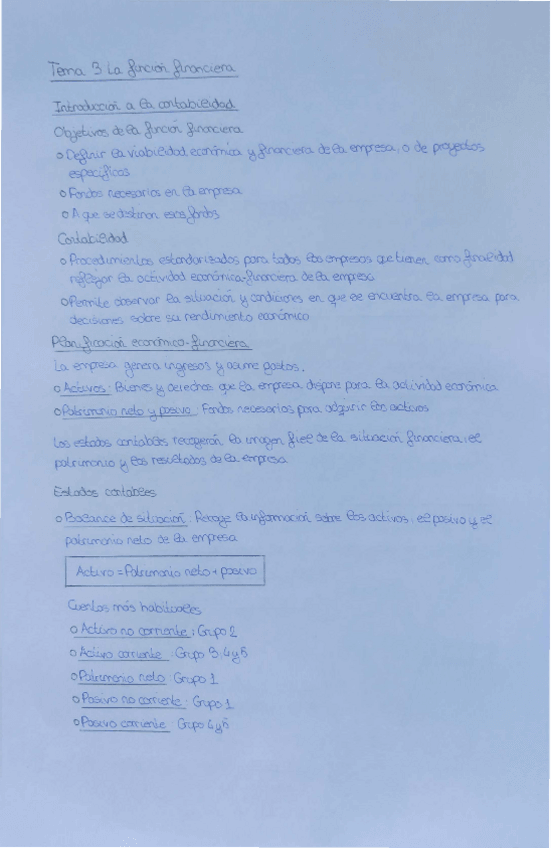 Tema 3 La función financiera
Introducción a la contabilidad
Objetivos de la función financiera
o Definir la viabilidad económica y financiera de la empresa, o de proyectos
específicos
o Fondos necesarios en la empresa
o A que se destinan esos fondos
Contabilidad
o Procedimientos estandarizados para todas las empresas que tienen como finalidad
reflejar la actividad económica-financiera de la empresa
o Permite observar la situación y condiciones en que se encuentra la empresa para
decisiones sobre su rendimiento económico
Planificación económico-financiera
La empresa genera ingresos y asume gastos.
o Activos: Bienes y derechos que la empresa dispone para la actividad económica
o Patrimonio neto y pasivo: Fondos necesarios para adquirir los activos
Los estados contables recogerán la imagen fiel de la situación financiera, el
patrimonio y los resultados de la empresa
Estados contables
o Balance de situación: Recoge la información sobre los activos, el pasivo y el
patrimonio neto de la empresa
Activo = Patrimonio neto + pasivo
Cuentas más habituales
o Activo no corriente: Grupo 2
o Activo corriente: Grupo 3, 4 y 5
o Patrimonio neto: Grupo 1
o Pasivo no corriente: Grupo 1
o Pasivo corriente: Grupo 4 y 5